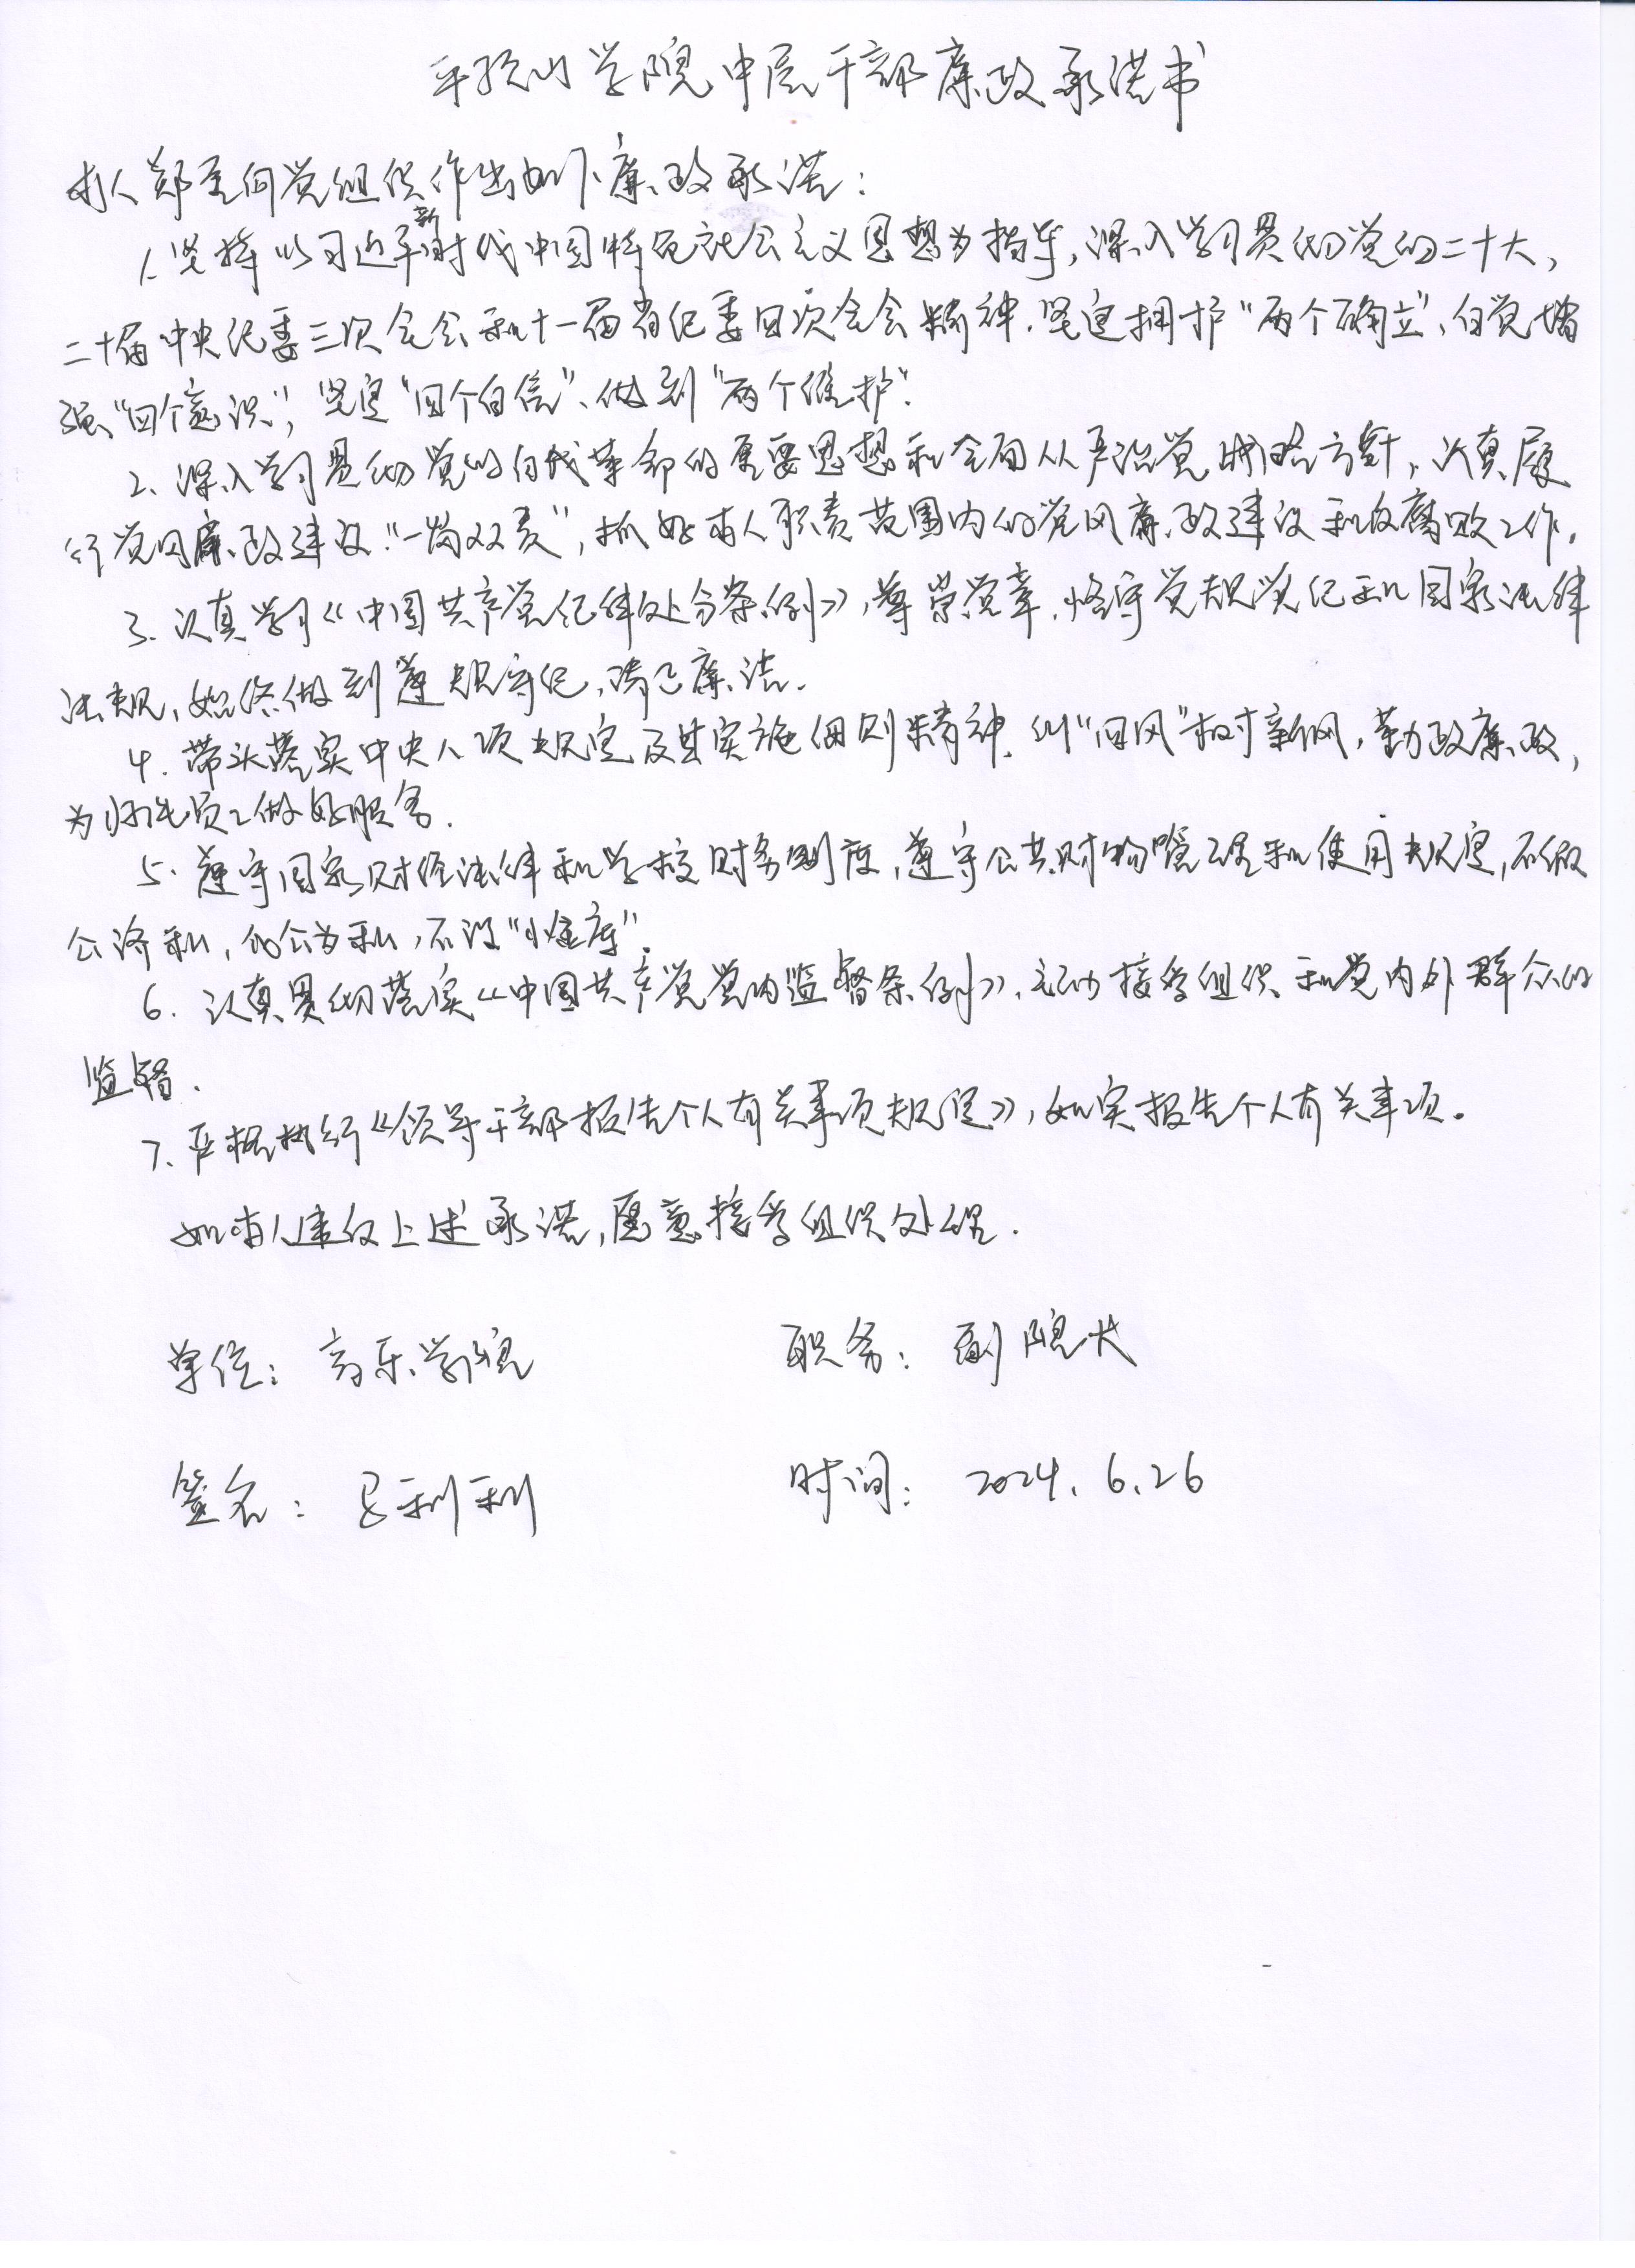 平顶山学院中层干部廉政承诺书
本人郑重向党组织作出如下廉政承诺：
1、坚持以习近平新时代中国特色社会主义思想为指导，深入学习贯彻党的二十大，
二十届中央纪委三次全会和十一届省纪委四次全会精神，坚定拥护“两个确立”、自觉增
强“四个意识”，坚定“四个自信”、做到“两个维护”.
2、深入学习贯彻党的自我革命的重要思想和全面从严治党战略方针，认真履
行党风廉政建设“一岗双责”，抓好本人职责范围内的党风廉政建设和反腐败工作。
3、认真学习《中国共产党纪律处分条例》，尊崇党章，恪守党规党纪和国家法律
法规，始终做到遵规守纪，清正廉洁.
4. 带头落实中央八项规定及其实施细则精神，纠“四风”树新风，勤政廉政，
为师生员工做好服务.
5. 遵守国家财经法律和学校财务制度，遵守公共财物管理和使用规定，不假
公济私，化公为私，不设“小金库”.
6. 认真贯彻落实《中国共产党党内监督条例》，主动接受组织和党内外群众的
监督.
7、严格执行《领导干部报告个人有关事项规定》，如实报告个人有关事项。
如本人违反上述承诺，愿意接受组织处理.
单位：音乐学院 职务：副院长
签名： 利利 时间：2024.6.26